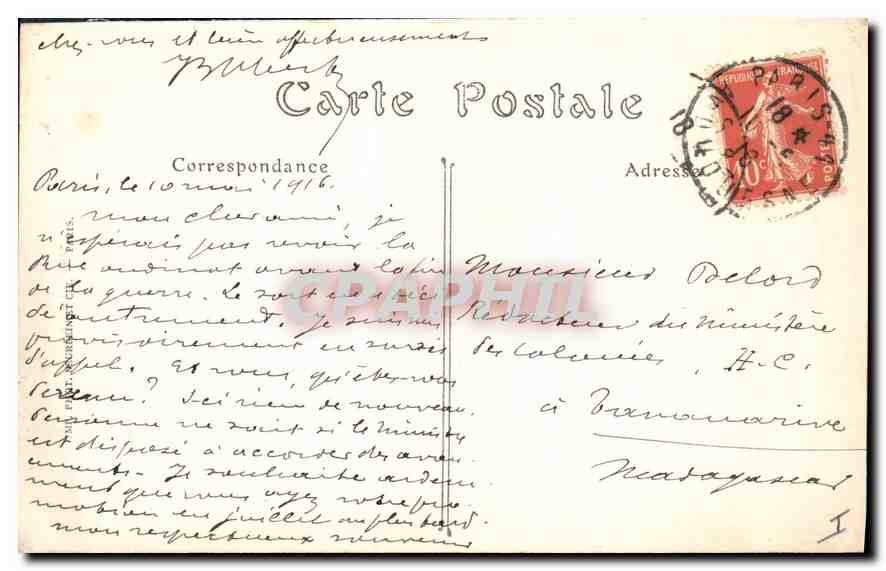 chez-vous et bien affectueusement
Carte Postale
Correspondance
Adresse
Paris, le 10 mai 1916.
mon cher ami, je
n'espérais pas revoir la
Rue oudinot avant la fin
de la guerre. Le sort en a décidé
autrement. Je suis mis
provisoirement en sursis
d'appel. Et vous, qu'êtes-vous
devenu? Ici rien de nouveau.
Personne ne sait si le ministre
est disposé à accorder des avan
cements. Je souhaite ardem
ment que vous ayez votre pro
motion en juillet au plus tard.
mon respectueux souvenir
Monsieur Delord
Rédacteur du Ministère
des Colonies, H.C.
à Tananarive
Madagascar
I
REPUBLIQUE FRANÇAISE
10c
POSTES
PARIS-41
18
IMP. PHOT. NEURDEIN ET CIE. PARIS.
CPAPHIL